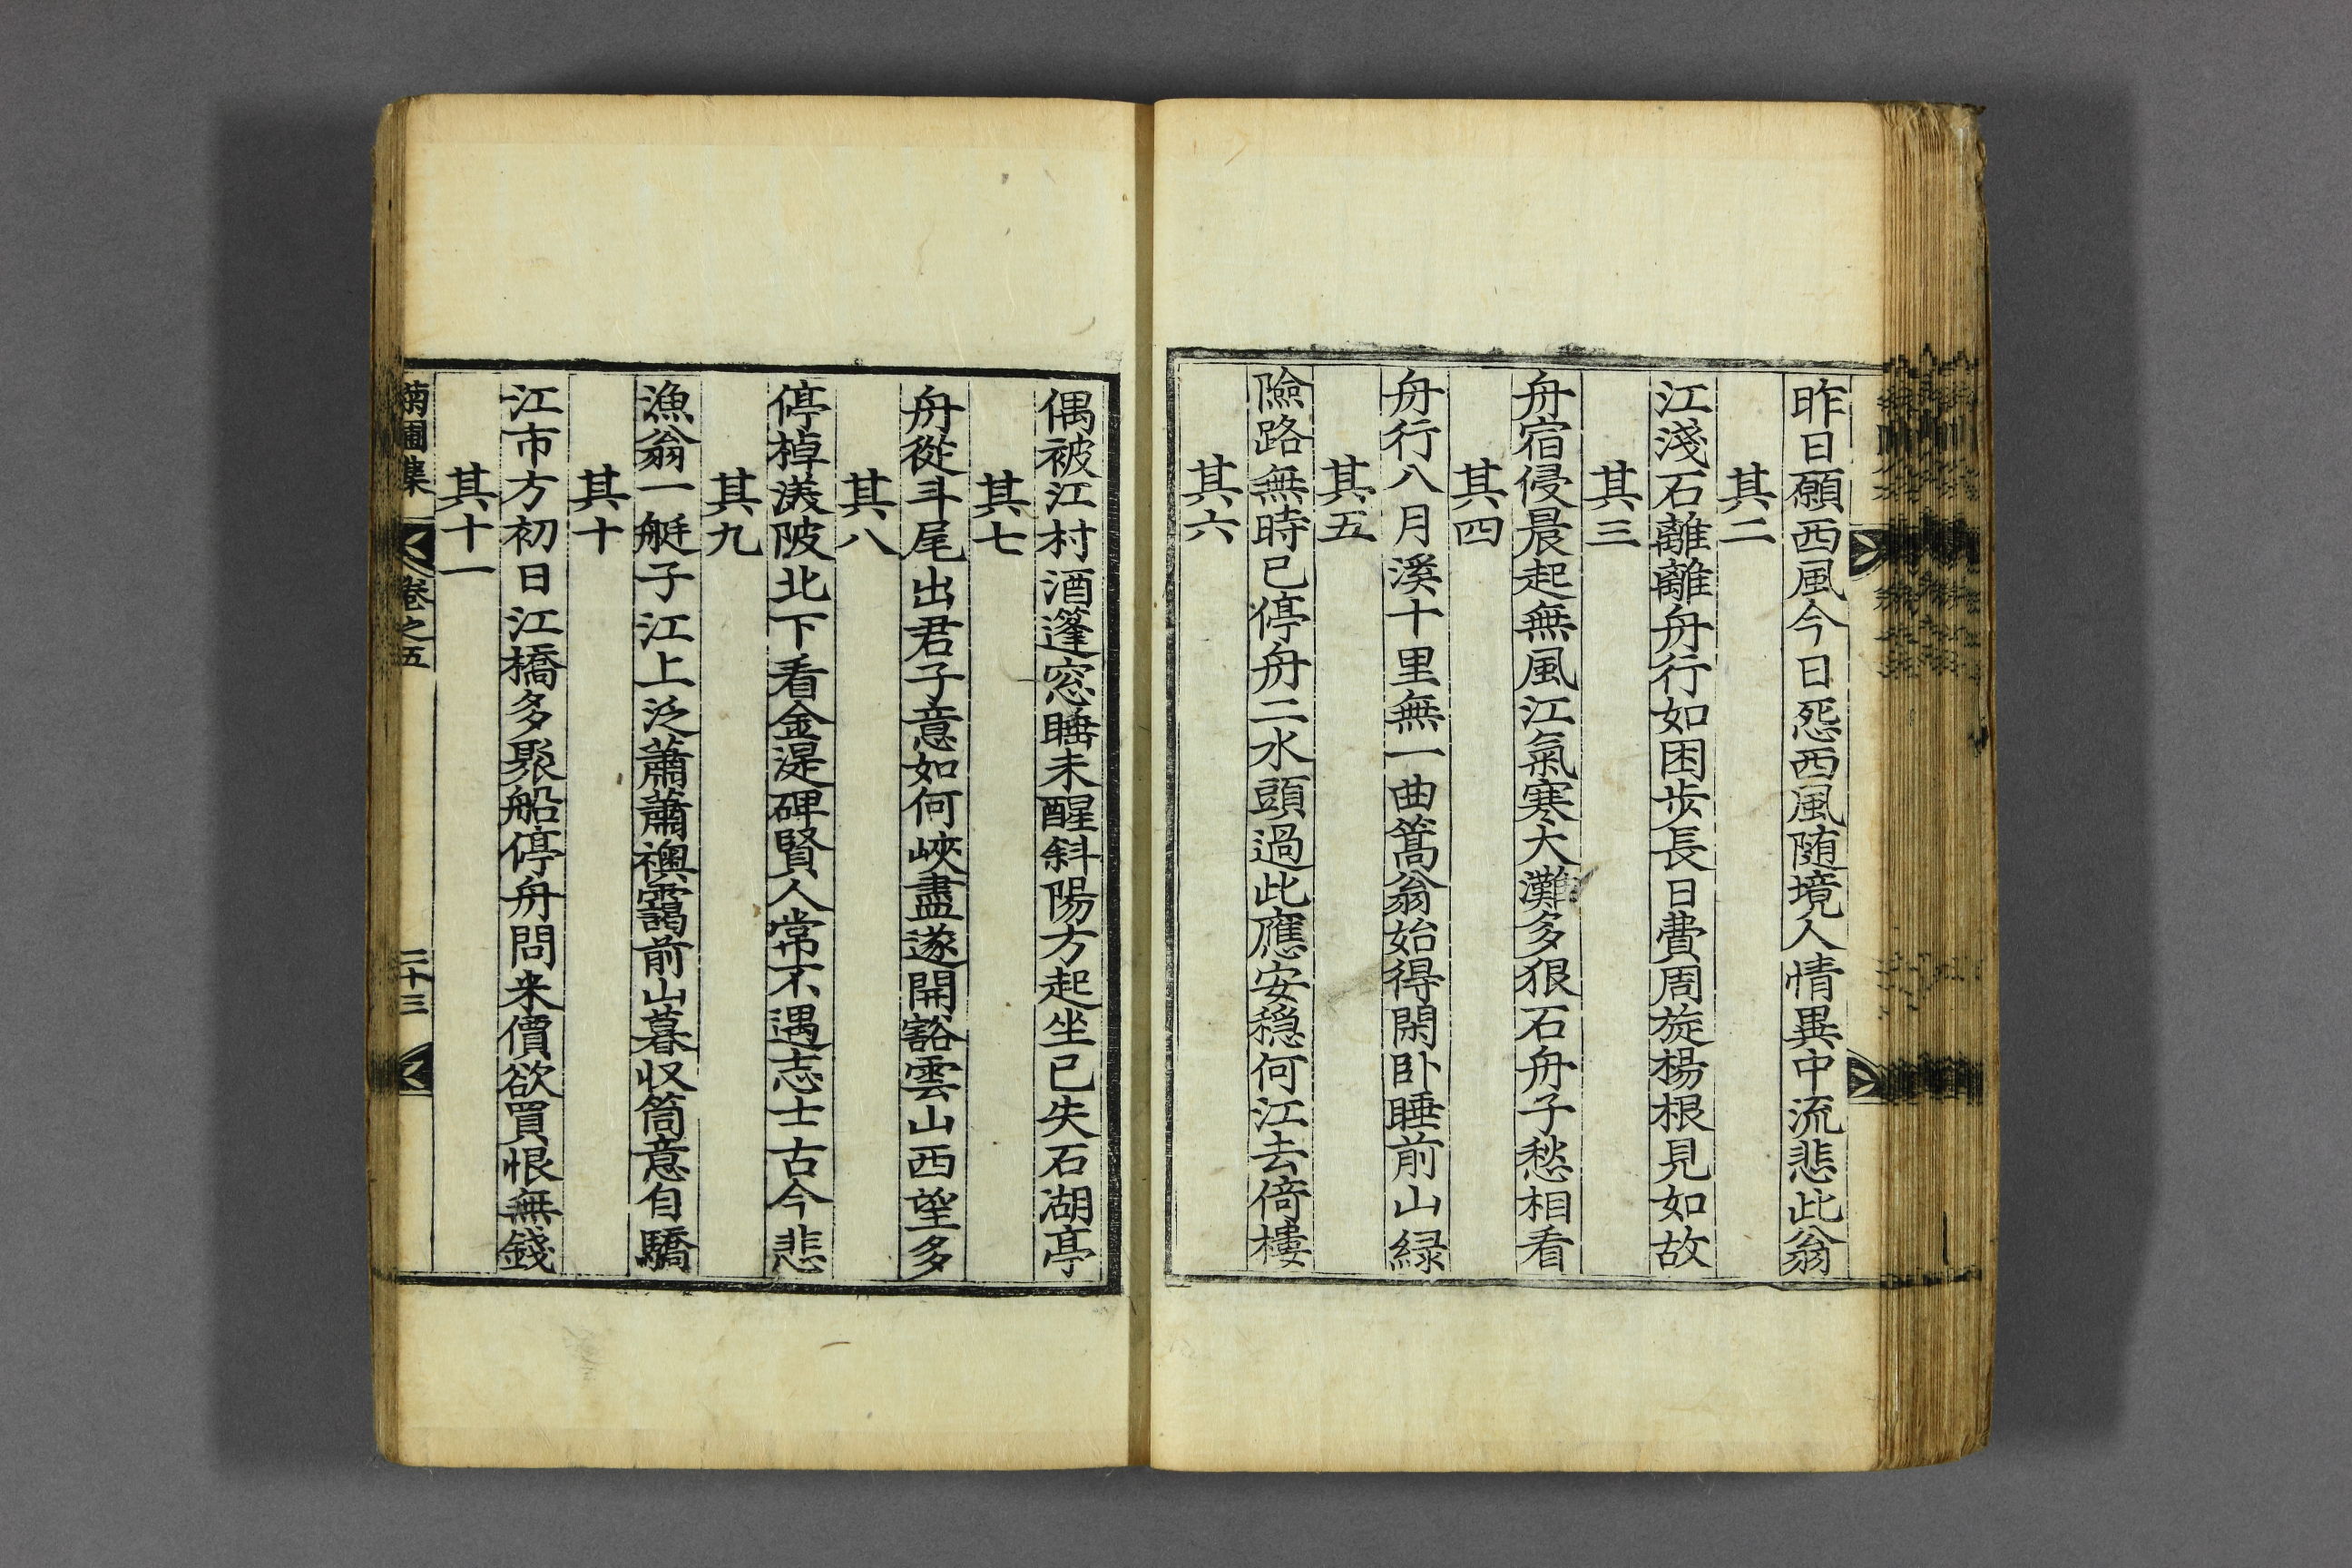 昨日願西風今日怨西風随境人情異中流悲此翁
其二
江淺石離離舟行如困步長日費周旋楊根見如故
其三
舟宿侵晨起無風江氣寒大灘多狠石舟子愁相看
其四
舟行八月溪十里無一曲篙翁始得閑卧睡前山緑
其五
險路無時已停舟二水頭過此應安穏何江去倚樓
其六
偶被江村酒篷窓睡未醒斜陽方起坐已失石湖亭
其七
舟從斗尾出君子意如何峽盡遂開豁雲山西望多
其八
停棹渼陂北下看金湜碑賢人常不遇志士古今悲
其九
漁翁一艇子江上泛蕭蕭襖靄前山暮収筒意自驕
其十
江市方初日江橋多聚船停舟問来價欲買恨無錢
其十一
菊圃集 卷之五 二十三